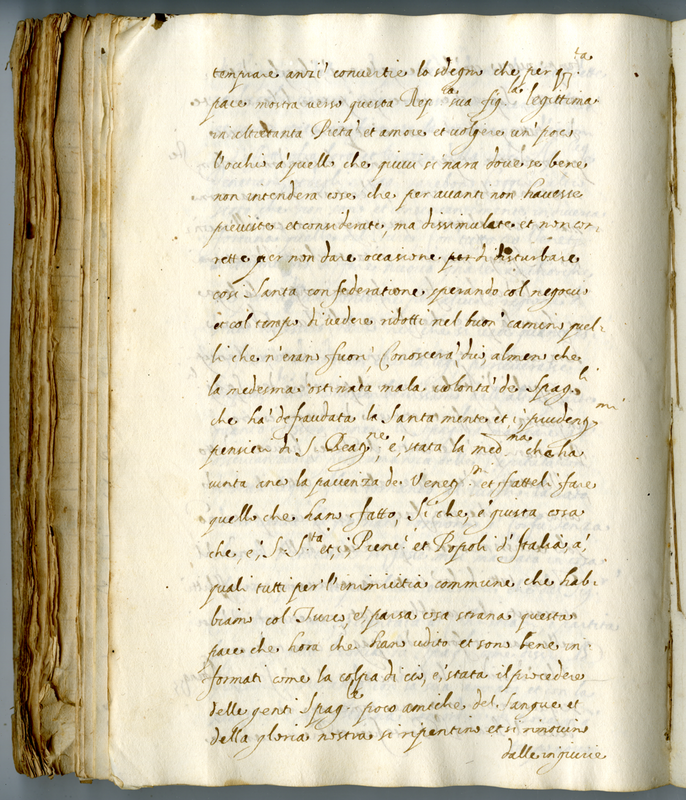 temprare anzi convertir lo sdegno che per q.ta
pace mostra verso questa Rep.ca sua fig.a legittima
in altretanta Pietà et amore et volgere un' poco
l'occhi a' quell che quivi si nara dove se bene
non intenderà cose che per avanti non havesse
previste et considerate, ma dissimulate et non cor-
rette per non dare occasione per di disturbare
cosi Santa confederatione sperando col negocio
et col tempo di vedere ridotti nel buon' camin quel-
li che n'eran fuori, Conoscerà, dico, almen che
la medesma ostinata mala volontà de Spag.li
che ha' defraudata la Santa mente et i prudenmi
pensieri di S. Beatne, è stata la medma che ha
vinta anc la pacienza de Venezni et fatteli fare
quello che han fatto, Si che è giusta cosa
che, e, S. S.ta et, i Prenci et Popoli d'Italia, a,
quali tutti per l'inimicitia commune che hab-
biam col Turco, è parsa cosa strana questa
pace che hora che han udito et son bene in
formati come la colpa di ciò, è stata il procedere
delle genti Spag.le poco amiche del sangue et
della gloria nostra si ripentino et si rimovin
dalle ingiurie